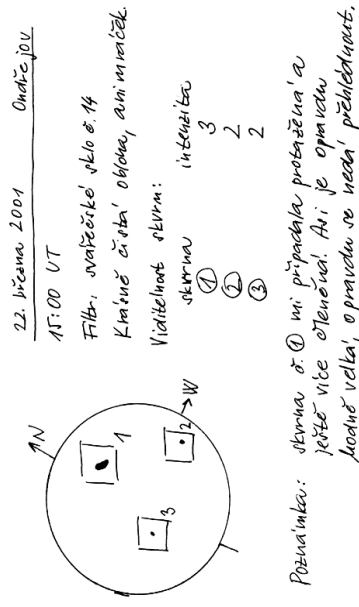 22. března 2001 Ondřejov
15:00 UT
Filtr: svářečské sklo č. 14
Krásně čistá obloha, ani mráček.
Viditelnost skvrn:
skvrna intenzita
① 3
② 2
③ 2
N
1
2
W
3
Poznámka: skvrna č. ① mi připadala protažená a
ještě více členěná! Asi je opravdu
hodně velká, opravdu se nedá přehlédnout.